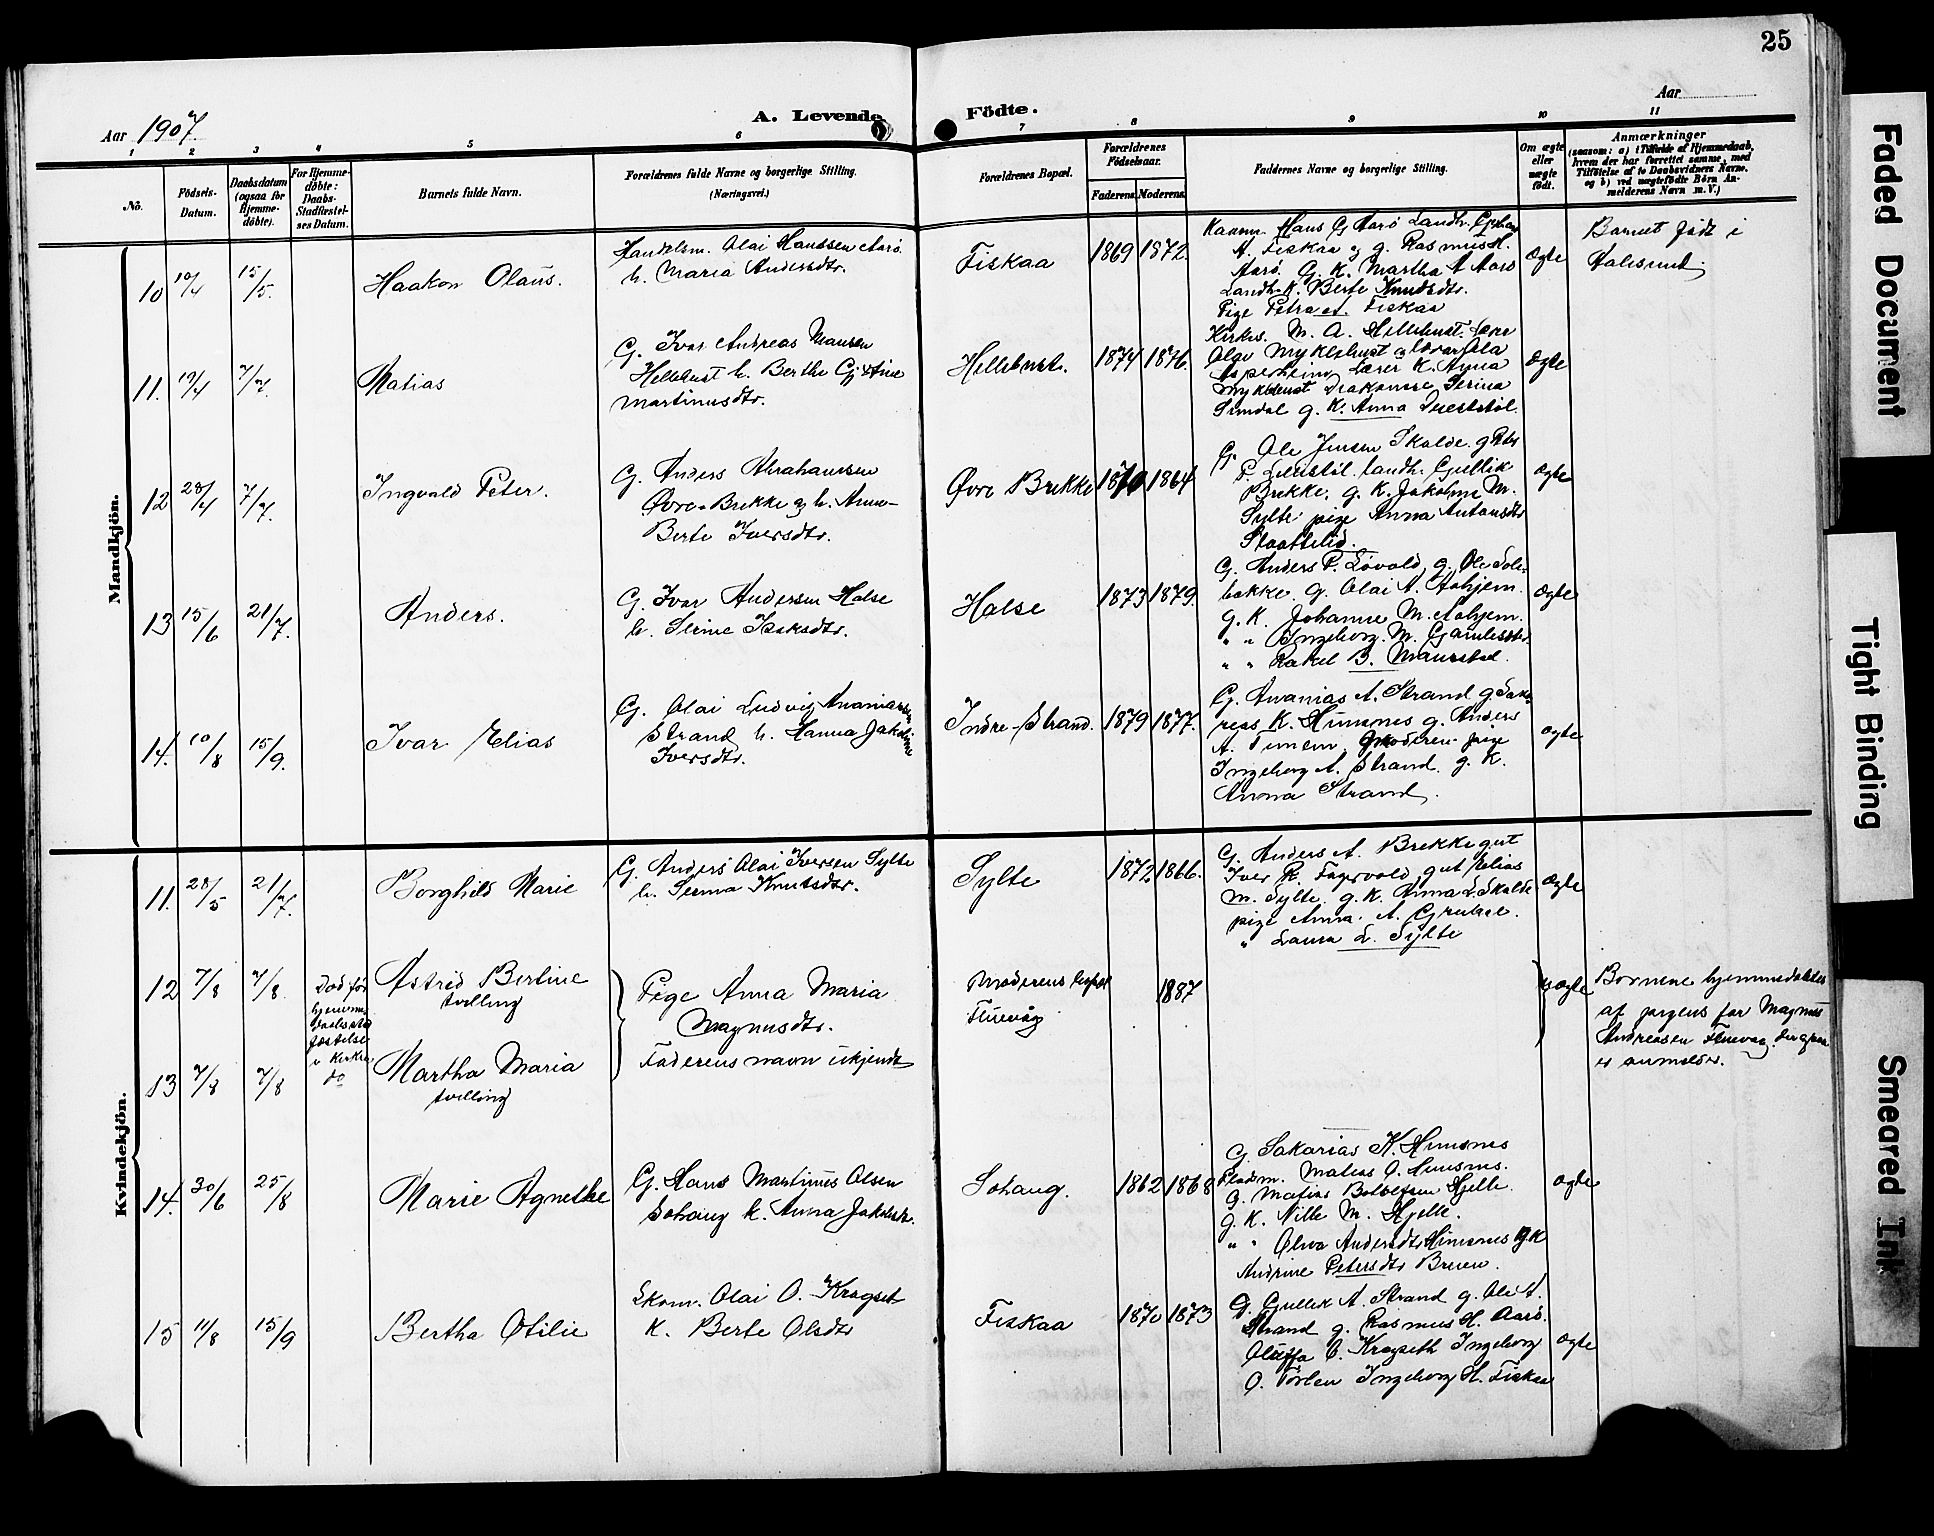 25
Aar 1907.
A. Levende Födte.
Aar
1 2 3 4 5 6 7 8 9 10 11
No.
Födsels-Datum.
Daabsdatum (ogsaa for Hjemme-döbte).
For Hjemme-döbte: Daabs-Stadfæstel-ses Datum.
Barnets fulde Navn.
Forældrenes fulde Navne og borgerlige Stilling.
(Næringsvei.)
Forældrenes Bopæl.
Forældrenes Födselsaar.
Faderens. Moderens.
Faddernes Navne og borgerlige Stilling.
Om ægte eller uægte födt.
Anmærkninger
(saasom: a) i Tilfælde af Hjemmedaab,
hvem der har forrettet samme, med
Tilföielse af to Daabsvidners Navne,
og b) ved uægtefödte Börn An-
melderens Navn m. V.)
Mandkjön.
10 10/4 15/5. Haakon Olaus.
Handelsm. Olai Hanssen Aarö
h. Maria Andersdtr.
Fiskaa 1869 1872.
Kaarm. Hans G Aarö Landh.
A. Fiskaa og g. Rasmus H.
Aarö. G. K. Martha A Aarö
Landh. K. Berte Knudsdtr.
Pige Petra A. Fiskaa
Ægte
Barnet födt i
Aalesund.
11. 19/4 7/7. Matias
G. Ivar Andreas Hansen
Hellebust h. Berthe Gjertine
Martinusdtr.
Hellebust. 1874 1876.
Kirkes. M. A. Hellebust. Lærer
Olav Myklebust og
Lærer K. Anna
Myklebust Serina
Sundal g. K. Anna
Ægte
12 28/4 7/7. Ingvald Peter.
G. Anders Abrahamsen
Övre-Brekke og h. Anne-
Berte Iversdtr.
Övre Brekke 1870 1864
G. Ole Jensen Skalde. g Peter
P. landh. Gullik
Brekke. g. K. Jakobine M.
Sylte pige Anna Antonsdtr
Slaattelid.
Ægte
13 15/6 21/7. Anders.
G. Ivar Andersen Halse
h. Serine Isaksdtr.
Halse 1873 1879.
G. Anders P. Lövold, g. Ole Sole-
bakke g. Olai A. Aahjem.
g. K. Johanne M. Aahjem.
" " Ingeborg. M.
" " Rakel B. Maurstad.
Ægte
14. 10/8 15/9. Ivar Elias
G. Olai Ludvig Ananiassen
Strand h. Hanna Jakobine
Iversdtr.
Indre-Strand. 1879 1877.
G. Ananias A. Strand g Saka-
rias K. Hunsnes g. Anders
A. Moderen pige
Ingeborg A. Strand. g. K.
Anna Strand.
ægte
Kvindekjön.
11. 28/5 21/7. Borghild Marie
G. Anders Olai Iversen Sylte
h. Serina Knutsdtr.
Sylte 1872 1866.
G. Anders A. Brekke gut
Iver R. Fagervold, gut Elias
M. Sylte. g. K. Anna L. Skalde
pige Anna. A.
" Laura L. Sylte
Ægte
12 7/8 7/8. Död för
hjemme-
daabs sta
fæstelse
i Kirke
Astrid Bertine
tvilling
Pige Anna Maria
Magnusdtr.
Faderens navn ukjendt
Moderens bopæl
Fluevåg
1887
uægte
Börnene hjemmedöbtes
af pigens far Magnus
Andreasen Fluevåg
er anmelder.
13 7/8 7/8 do Martha Maria
tvilling
14. 30/6 25/8 Marie Agnethe
G. Hans Martinus Olsen
Sohaug k. Anna Jakobsdtr.
Sohaug. 1862 1868
G Sakarias K. Hunsnes
Pladsm. Matias O. Hunsnes.
G. Matias Hjelle.
g. K. Nille M. Hjelle.
" " Oliva Andersdtr Hunsnes g K
Andrine Petersdtr Breien.
ægte
15 11/8 15/9 Bertha Otilie
Skom. Olai O. Kragset
K. Berte Olsdtr
Fiskaa 1870 1873
G. Gullik A. Strand g. Ole A.
Strand g. Rasmus H. Aarö.
Oluffa O. Kragseth Ingeborg
O. Ingeborg H. Fiskaa
ægte
Faded Document
Tight Binding
Smeared Ink